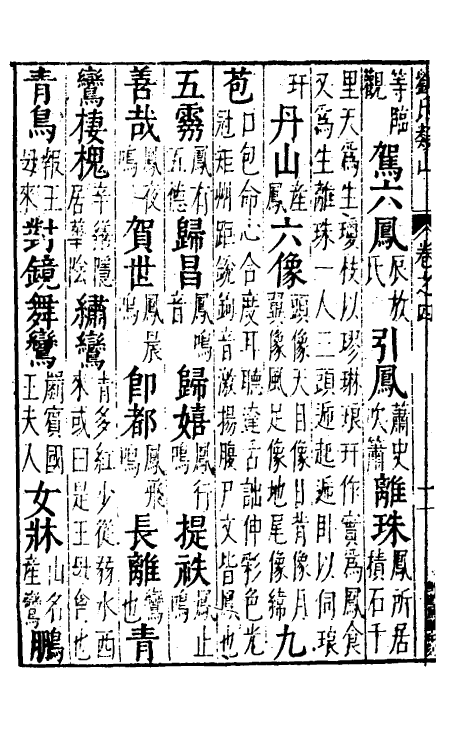 劉氏類山　卷之四
等臨觀　駕六鳳辰放氏　引鳳蕭史吹簫　離珠鳳所居積石千
里天爲生瓊枝以璆琳琅玕作實爲鳳食又爲生離珠一人三頭遞起遞臥以伺琅
玕　丹山產鳳　六像頭像天目像日背像月翼像風足像地尾像緯　九
苞口包命心合度耳聽達舌詘伸彩色光冠矩州距銳鉤音激揚腹戶文皆鳳也
五霧鳳有五德　歸昌鳳鳴音　歸嬉鳳行鳴　提祑鳳止鳴
善哉鳳夜鳴　賀世鳳晨鳴　卽都鳳飛鳴　長離鸞也　青
鸞棲槐辛繕隱居華陰　繡鸞青多紅少從弱水西來或曰是王母禽也
青鳥報王母來　對鏡舞鸞罽賓國王夫人　女牀山名產鸞　鵬